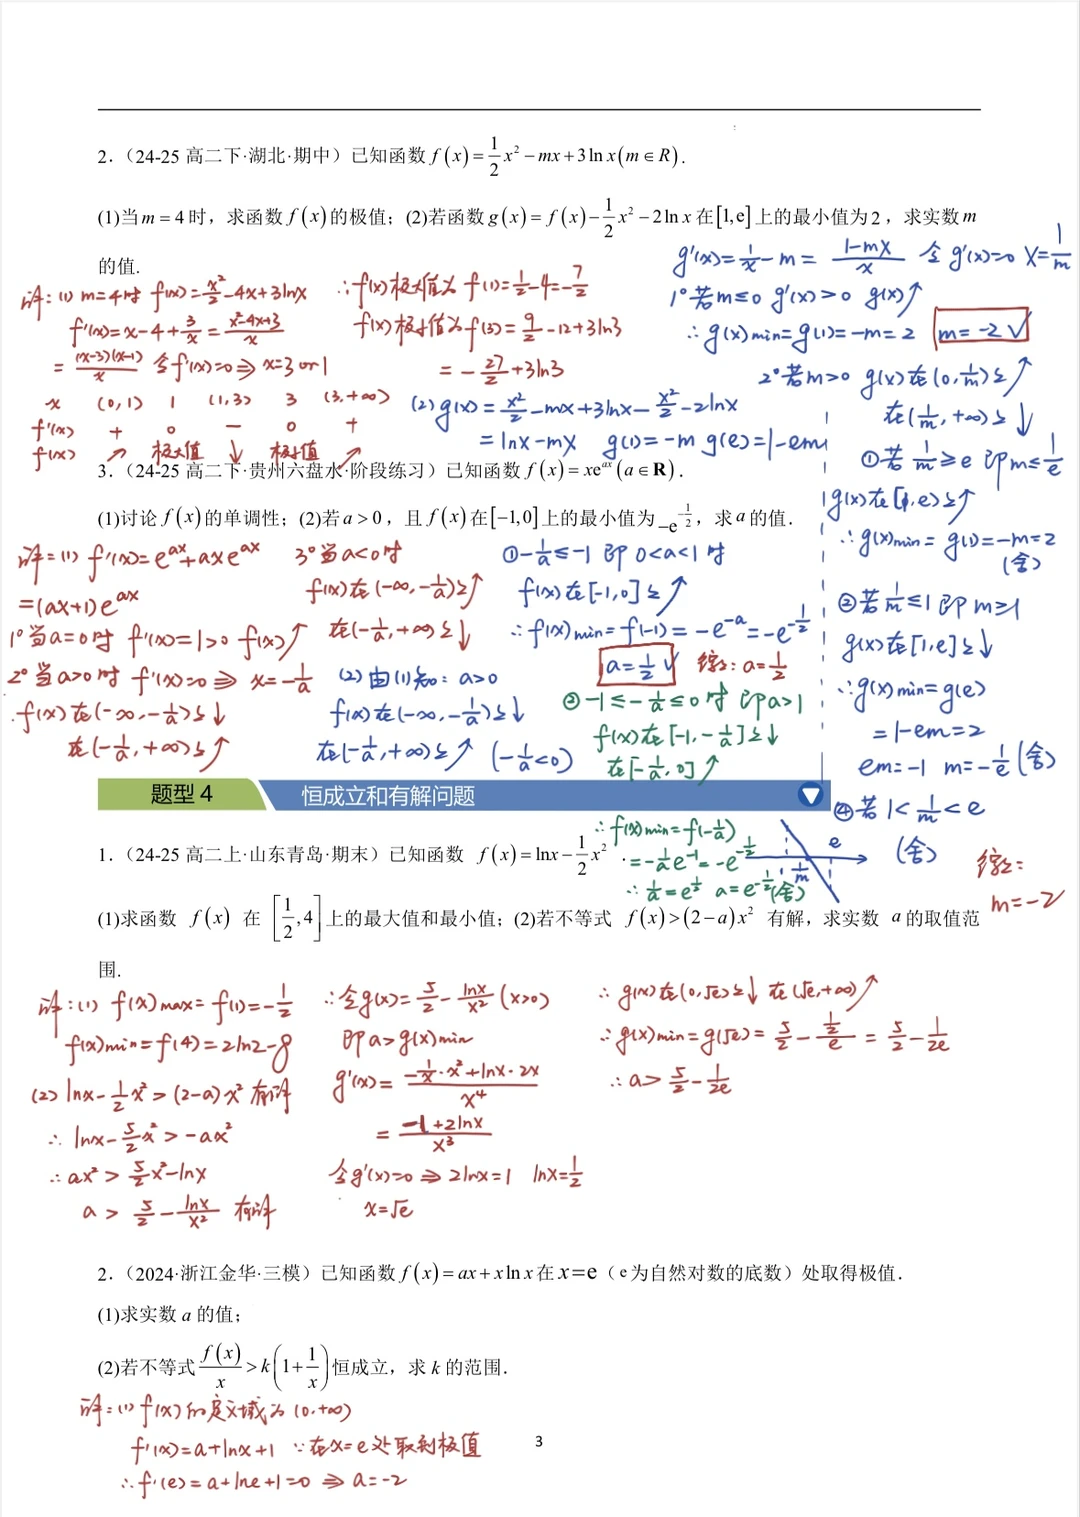 2.（24-25 高二下·湖北·期中）已知函数 f(x)=1/2 x²-mx+3ln x(m∈R).
(1)当m=4时，求函数f(x)的极值；(2)若函数g(x)=f(x)-1/2 x²-2ln x在[1,e]上的最小值为2，求实数m
的值.
解:(1) m=4时 f(x)=x²/2-4x+3lnx
f'(x)=x-4+3/x=(x²-4x+3)/x
=(x-3)(x-1)/x 令f'(x)=0⇒x=3 or 1
x (0,1) 1 (1,3) 3 (3,+∞)
f'(x) + 0 - 0 +
f(x) ↗ 极大值 ↓ 极小值 ↗
∴f(x)极大值为f(1)=1/2-4=-7/2
f(x)极小值为f(3)=9/2-12+3ln3
=-27/2+3ln3
(2) g(x)=x²/2-mx+3lnx-x²/2-2lnx
=lnx-mx g(1)=-m g(e)=1-em
g'(x)=1/x-m=(1-mx)/x 令g'(x)=0 x=1/m
1°若m≤0 g'(x)>0 g(x)↗
∴g(x)min=g(1)=-m=2 m=-2✓
2°若m>0 g(x)在(0,1/m)≥↗
在(1/m,+∞)≥↓
①若1/m≥e 即m≤1/e
g(x)在[1,e)≥↗
∴g(x)min=g(1)=-m=2
(舍)
②若1/m≤1即m≥1
g(x)在[1,e]≥↓
∴g(x)min=g(e)
=1-em=2
em=-1 m=-1/e(舍)
④若1<1/m<e
1 1/m e
(舍)
综上:
m=-2
3.（24-25 高二下·贵州六盘水·阶段练习）已知函数f(x)=xe^{ax}(a∈R).
(1)讨论f(x)的单调性；(2)若a>0，且f(x)在[-1,0]上的最小值为-e^{-1/2}，求a的值.
解=(1) f'(x)=e^{ax}+axe^{ax}
=(ax+1)e^{ax}
1°当a=0时 f'(x)=1>0 f(x)↗
2°当a>0时 f'(x)=0⇒x=-1/a
.f(x)在(-∞,-1/a)≥↓
在(-1/a,+∞)≥↗
3°当a<0时
f(x)在(-∞,-1/a)≥↗
在(-1/a,+∞)≥↓
(2)由(1)知: a>0
f(x)在(-∞,-1/a)≥↓
在(-1/a,+∞)≥↗ (-1/a<0)
①-1/a≤-1 即0<a<1时
f(x)在[-1,0]≥↗
∴f(x)min=f(-1)=-e^{-a}=-e^{-1/2}
a=1/2✓ 综上: a=1/2
②-1≤-1/a≤0时 即a>1
f(x)在[-1,-1/a]≥↓
在[-1/a,0]↗
∴f(x)min=f(-1/a)
=-1/a e^{-1}=-e^{-1/2}
∴1/a=e^{1/2} a=e^{-1/2}(舍)
题型 4 恒成立和有解问题
1.（24-25 高二上·山东青岛·期末）已知函数 f(x)=lnx-1/2 x²
(1)求函数 f(x) 在 [1/2,4] 上的最大值和最小值；(2)若不等式 f(x)>(2-a)x² 有解，求实数 a的取值范
围.
解:(1) f(x)max=f(1)=-1/2
f(x)min=f(4)=2ln2-8
(2) lnx-1/2 x²>(2-a)x² 有解
∴lnx-5/2 x²>-ax²
∴ax²>5/2 x²-lnx
a>5/2-lnx/x² 有解
∴令g(x)=5/2-lnx/x² (x>0)
即a>g(x)min
g'(x)=(-1/x·x²+lnx·2x)/x⁴
=(-1+2lnx)/x³
令g'(x)=0⇒2lnx=1 lnx=1/2
x=√e
∴g(x)在(0,√e)≥↓ 在(√e,+∞)↗
∴g(x)min=g(√e)=5/2-(1/2)/e=5/2-1/2e
∴a>5/2-1/2e
2.（2024·浙江金华·三模）已知函数f(x)=ax+xln x在x=e（e为自然对数的底数）处取得极值.
(1)求实数 a 的值；
(2)若不等式f(x)/x>k(1+1/x)恒成立，求 k 的范围.
解:(1) f(x)的定义域为(0,+∞)
f'(x)=a+lnx+1 ∵在x=e处取到极值
∴f'(e)=a+lne+1=0⇒a=-2
3